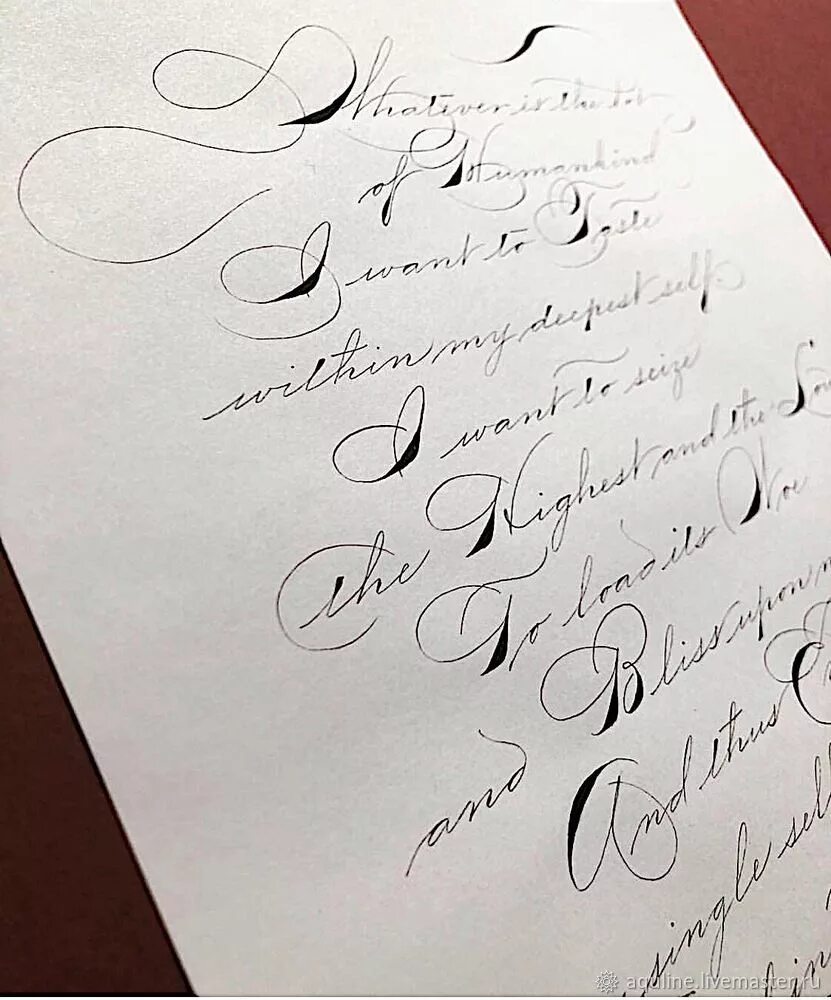 Whatever is the lot
of Humankind
I want to Taste
within my deepest self.
I want to seize
the Highest and the
To load its Woe
and Bliss upon
And thus
single
aquline.livemaster.ru